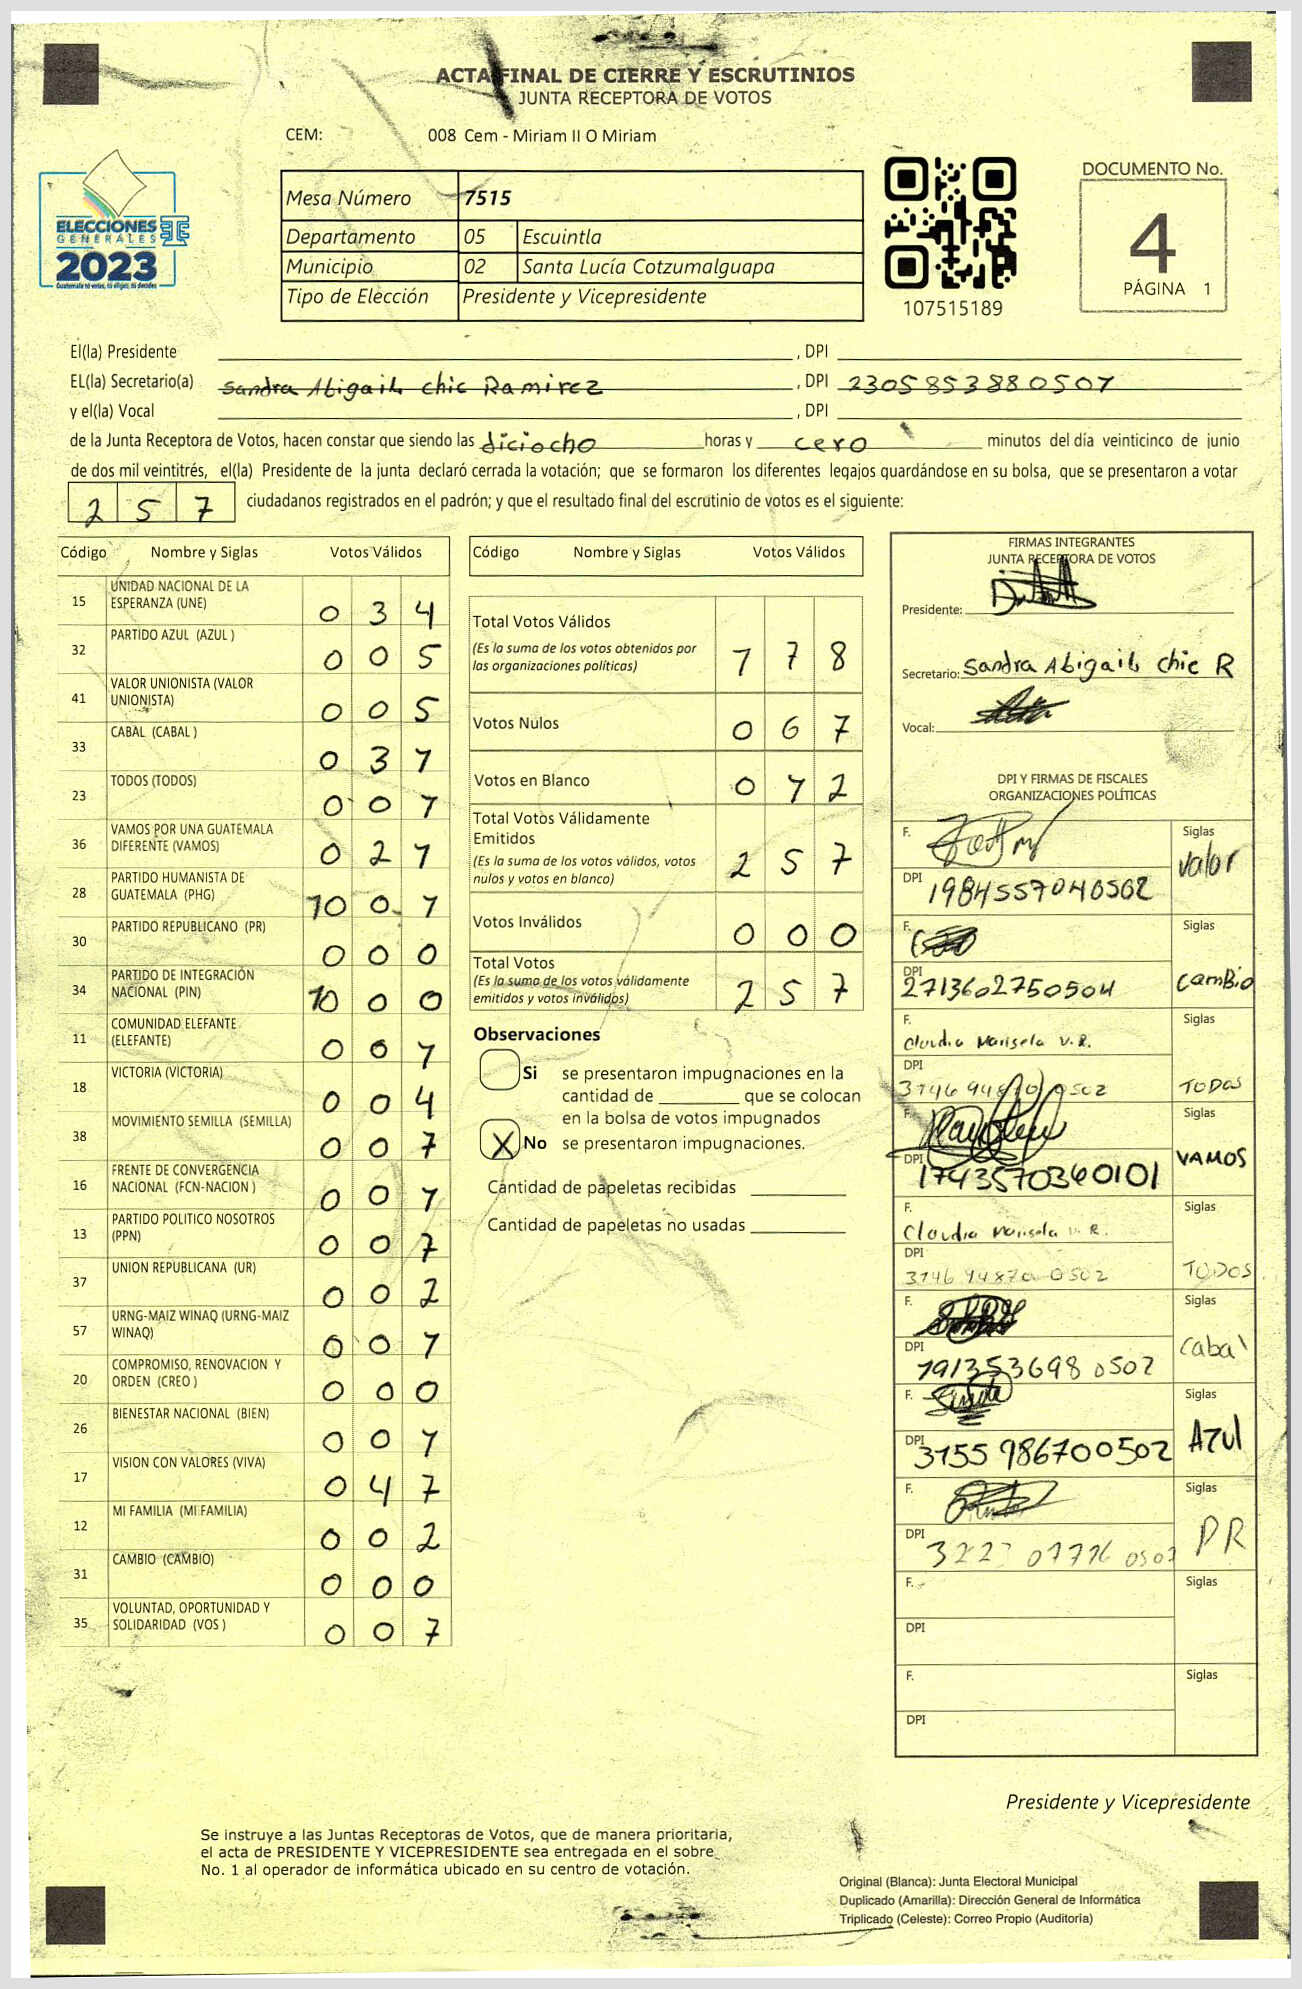 ACTA FINAL DE CIERRE Y ESCRUTINIOS
JUNTA RECEPTORA DE VOTOS
CEM: 008 Cem - Miriam II O Miriam
ELECCIONES
GENERALES
2023
Guatemala tú votas, tú eliges, tú decides
Mesa Número 7515
Departamento 05 Escuintla
Municipio 02 Santa Lucía Cotzumalguapa
Tipo de Elección Presidente y Vicepresidente
107515189
DOCUMENTO No.
4
PÁGINA 1
El(la) Presidente , DPI
EL(la) Secretario(a) Sandra Abigail chic Ramirez , DPI 2305853880507
y el(la) Vocal , DPI
de la Junta Receptora de Votos, hacen constar que siendo las diciocho horas y cero minutos del día veinticinco de junio
de dos mil veintitrés, el(la) Presidente de la junta declaró cerrada la votación; que se formaron los diferentes legajos quardándose en su bolsa, que se presentaron a votar
2 5 7 ciudadanos registrados en el padrón; y que el resultado final del escrutinio de votos es el siguiente:
Código Nombre y Siglas Votos Válidos
15 UNIDAD NACIONAL DE LA ESPERANZA (UNE) 0 3 4
32 PARTIDO AZUL (AZUL ) 0 0 5
41 VALOR UNIONISTA (VALOR UNIONISTA) 0 0 5
33 CABAL (CABAL ) 0 3 1
23 TODOS (TODOS) 0 0 1
36 VAMOS POR UNA GUATEMALA DIFERENTE (VAMOS) 0 2 1
28 PARTIDO HUMANISTA DE GUATEMALA (PHG) 10 0 1
30 PARTIDO REPUBLICANO (PR) 0 0 0
34 PARTIDO DE INTEGRACIÓN NACIONAL (PIN) 10 0 0
11 COMUNIDAD ELEFANTE (ELEFANTE) 0 0 1
18 VICTORIA (VICTORIA) 0 0 4
38 MOVIMIENTO SEMILLA (SEMILLA) 0 0 7
16 FRENTE DE CONVERGENCIA NACIONAL (FCN-NACION ) 0 0 1
13 PARTIDO POLITICO NOSOTROS (PPN) 0 0 7
37 UNION REPUBLICANA (UR) 0 0 2
57 URNG-MAIZ WINAQ (URNG-MAIZ WINAQ) 0 0 1
20 COMPROMISO, RENOVACION Y ORDEN (CREO ) 0 0 0
26 BIENESTAR NACIONAL (BIEN) 0 0 1
17 VISION CON VALORES (VIVA) 0 4 7
12 MI FAMILIA (MI FAMILIA) 0 0 2
31 CAMBIO (CAMBIO) 0 0 0
35 VOLUNTAD, OPORTUNIDAD Y SOLIDARIDAD (VOS ) 0 0 7
Código Nombre y Siglas Votos Válidos
Total Votos Válidos 1 7 8
(Es la suma de los votos obtenidos por
las organizaciones políticas)
Votos Nulos 0 6 7
Votos en Blanco 0 1 2
Total Votos Válidamente
Emitidos 2 5 7
(Es la suma de los votos válidos, votos
nulos y votos en blanco)
Votos Inválidos 0 0 0
Total Votos 2 5 7
(Es la suma de los votos válidamente
emitidos y votos inválidos)
Observaciones
Si se presentaron impugnaciones en la
cantidad de que se colocan
en la bolsa de votos impugnados
X No se presentaron impugnaciones.
Cantidad de papeletas recibidas
Cantidad de papeletas no usadas
FIRMAS INTEGRANTES
JUNTA RECEPTORA DE VOTOS
Presidente:
Secretario: Sandra Abigail chic R
Vocal:
DPI Y FIRMAS DE FISCALES
ORGANIZACIONES POLÍTICAS
F. Siglas
valor
DPI 1984557040502
F. Siglas
DPI 2713602750504 cambio
F. Claudia Marisela V.R. Siglas
DPI 3146 94870 0502 TODOS
F. Siglas
DPI 1743570360101 VAMOS
F. Claudia Marisela V. R. Siglas
DPI 3146 94870 0502 TODOS
F. Siglas
DPI 191353698 0502 cabal
F. Siglas
DPI 3155 986700502 Azul
F. Siglas
DPI PR
F. Siglas
DPI
F. Siglas
DPI
Presidente y Vicepresidente
Se instruye a las Juntas Receptoras de Votos, que de manera prioritaria,
el acta de PRESIDENTE Y VICEPRESIDENTE sea entregada en el sobre
No. 1 al operador de informática ubicado en su centro de votación.
Original (Blanca): Junta Electoral Municipal
Duplicado (Amarilla): Dirección General de Informática
Triplicado (Celeste): Correo Propio (Auditoría)